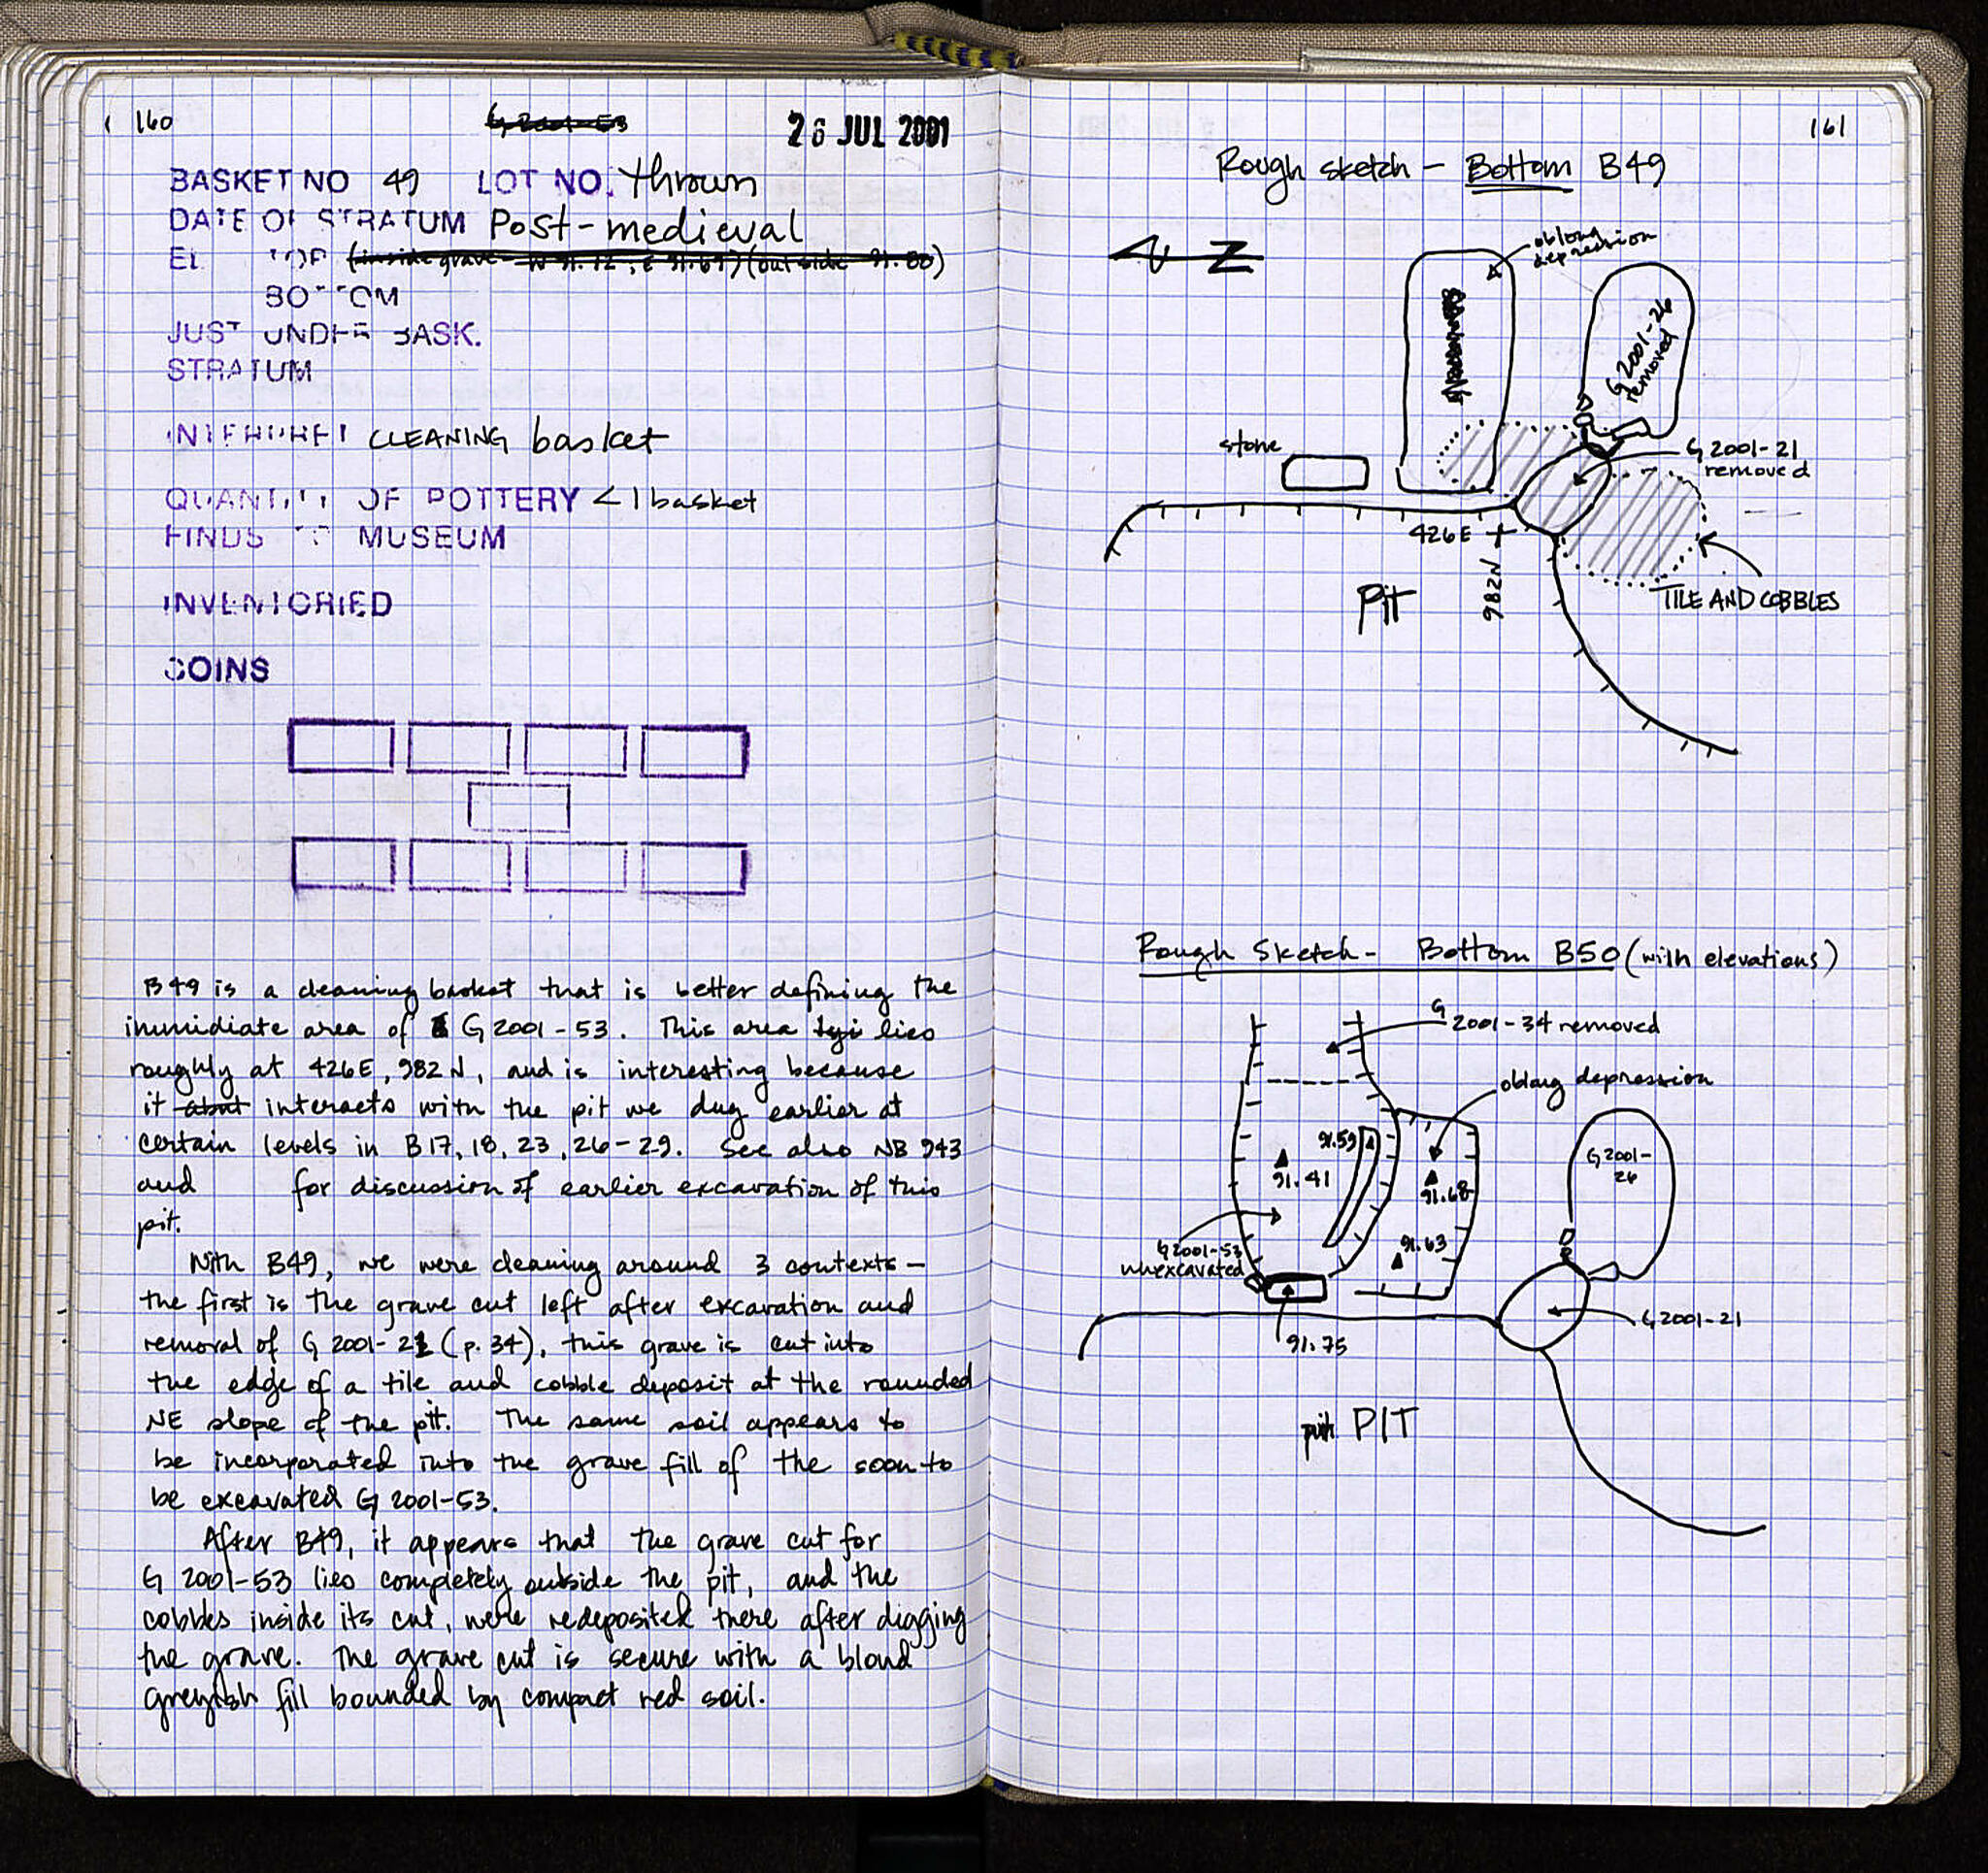 160
26 JUL 2001
BASKET NO 49 LOT NO. thrown
DATE OF STRATUM Post-medieval
EL TOP (inside grave W 91.72, E 91.69) (outside 91.80)
BOTTOM
JUST UNDER BASK.
STRATUM
INTERPRET CLEANING basket
QUANTITY OF POTTERY < 1 basket
FINDS TO MUSEUM
INVENTORIED
COINS
B49 is a cleaning basket that is better defining the
immidiate area of G 2001-53. This area lies
roughly at 426E, 982N, and is interesting because
it interacts with the pit we dug earlier at
certain levels in B17, 18, 23, 26-29. See also NB 943
and for discussion of earlier excavation of this
pit.
With B49, we were cleaning around 3 contexts -
the first is the grave cut left after excavation and
removal of G 2001-21 (p. 34), this grave is cut into
the edge of a tile and cobble deposit at the rounded
NE slope of the pit. The same soil appears to
be incorporated into the grave fill of the soon to
be excavated G 2001-53.
After B49, it appears that the grave cut for
G 2001-53 lies completely outside the pit, and the
cobbles inside its cut, were redeposited there after digging
the grave. The grave cut is secure with a blond
greyish fill bounded by compact red soil.
161
Rough sketch - Bottom B49
N
oblong
depression
G 2001-26
removed
stone
G 2001-21
removed
426E
982N
Pit
TILE AND COBBLES
Rough Sketch - Bottom B50 (with elevations)
G
2001-34 removed
oblong depression
91.59
91.41
91.68
G 2001-
26
91.63
G 2001-53
unexcavated
G 2001-21
91.75
PIT